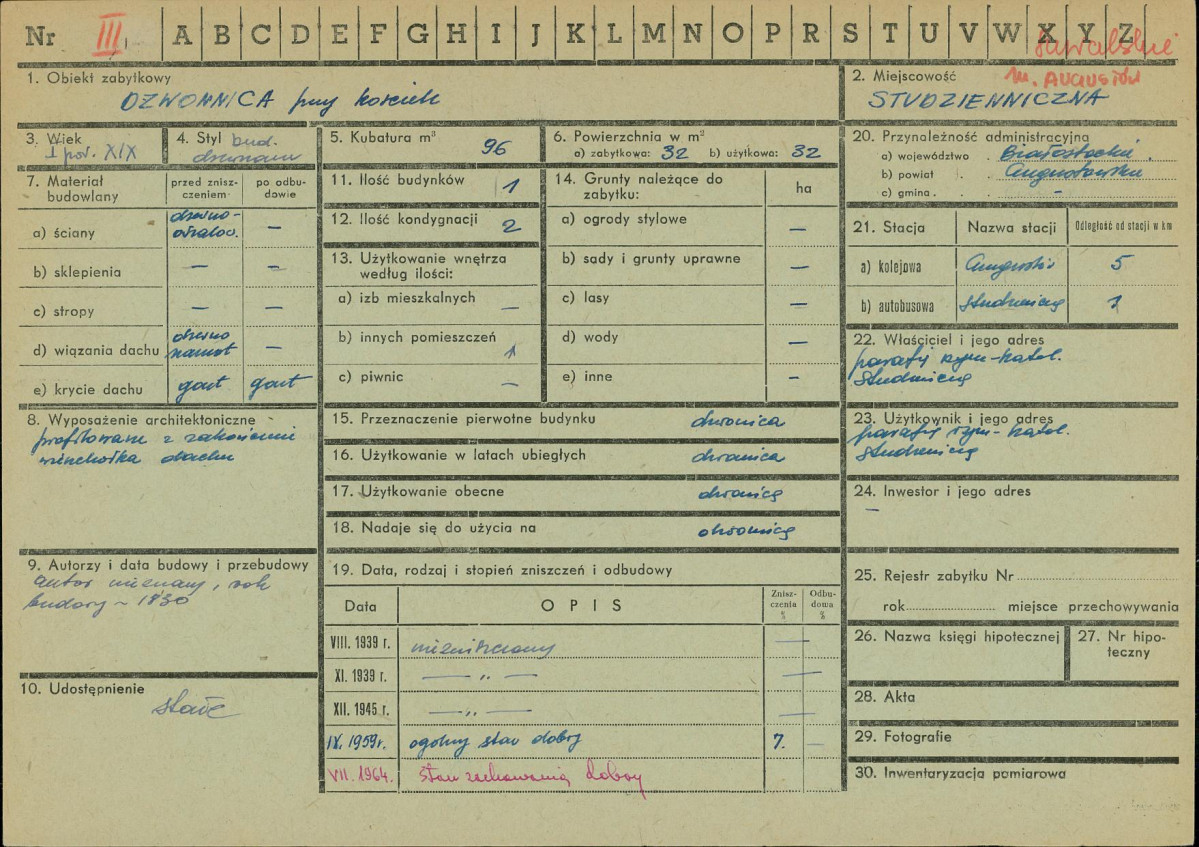 Nr III A B C D E F G H I J K L M N O P R S T U V W X Y Z
suwalskie
m. AUGUSTÓW
1. Obiekt zabytkowy
DZWONNICA przy kościele
2. Miejscowość
STUDZIENNICZNA
3. Wiek
I poł. XIX
4. Styl bud.
drewnian
5. Kubatura m³ 96
6. Powierzchnia w m²
a) zabytkowa: 32 b) użytkowa: 32
20. Przynależność administracyjna
a) województwo . Białostockie .
b) powiat . . Augustowski
c) gmina . . –
7. Materiał budowlany
przed znisz-
czeniem
po odbu-
dowie
a) ściany drewno- –
oszalow.
b) sklepienia – –
c) stropy – –
d) wiązania dachu drewno –
namiot
e) krycie dachu gont gont
11. Ilość budynków 1
12. Ilość kondygnacji 2
13. Użytkowanie wnętrza
według ilości:
a) izb mieszkalnych –
b) innych pomieszczeń 1
c) piwnic –
14. Grunty należące do
zabytku: ha
a) ogrody stylowe –
b) sady i grunty uprawne –
c) lasy –
d) wody –
e) inne –
21. Stacja Nazwa stacji Odległość od stacji w km
a) kolejowa Augustów 5
b) autobusowa 1
22. Właściciel i jego adres
parafia rzym-katol.
8. Wyposażenie architektoniczne
profilowane z zakończenie
wierzchołka dachu
15. Przeznaczenie pierwotne budynku dzwonnica
16. Użytkowanie w latach ubiegłych dzwonnica
17. Użytkowanie obecne dzwonnica
18. Nadaje się do użycia na dzwonnicę
23. Użytkownik i jego adres
parafia rzym-katol.
24. Inwestor i jego adres
–
9. Autorzy i data budowy i przebudowy
autor nieznany, rok
budowy ~ 1830
10. Udostępnienie
stałe
19. Data, rodzaj i stopień zniszczeń i odbudowy
Data OPIS Znisz-
czenia
%
Odbu-
dowa
%
VIII. 1939 r. niezniszczony – –
XI. 1939 r. — „ — –
XII. 1945 r. — „ — –
IX. 1959 r. ogólny stan dobry 7. –
VII. 1964. stan zachowania dobry
25. Rejestr zabytku Nr
rok miejsce przechowywania
26. Nazwa księgi hipotecznej
27. Nr hipo-
teczny
28. Akta
29. Fotografie
30. Inwentaryzacja pomiarowa